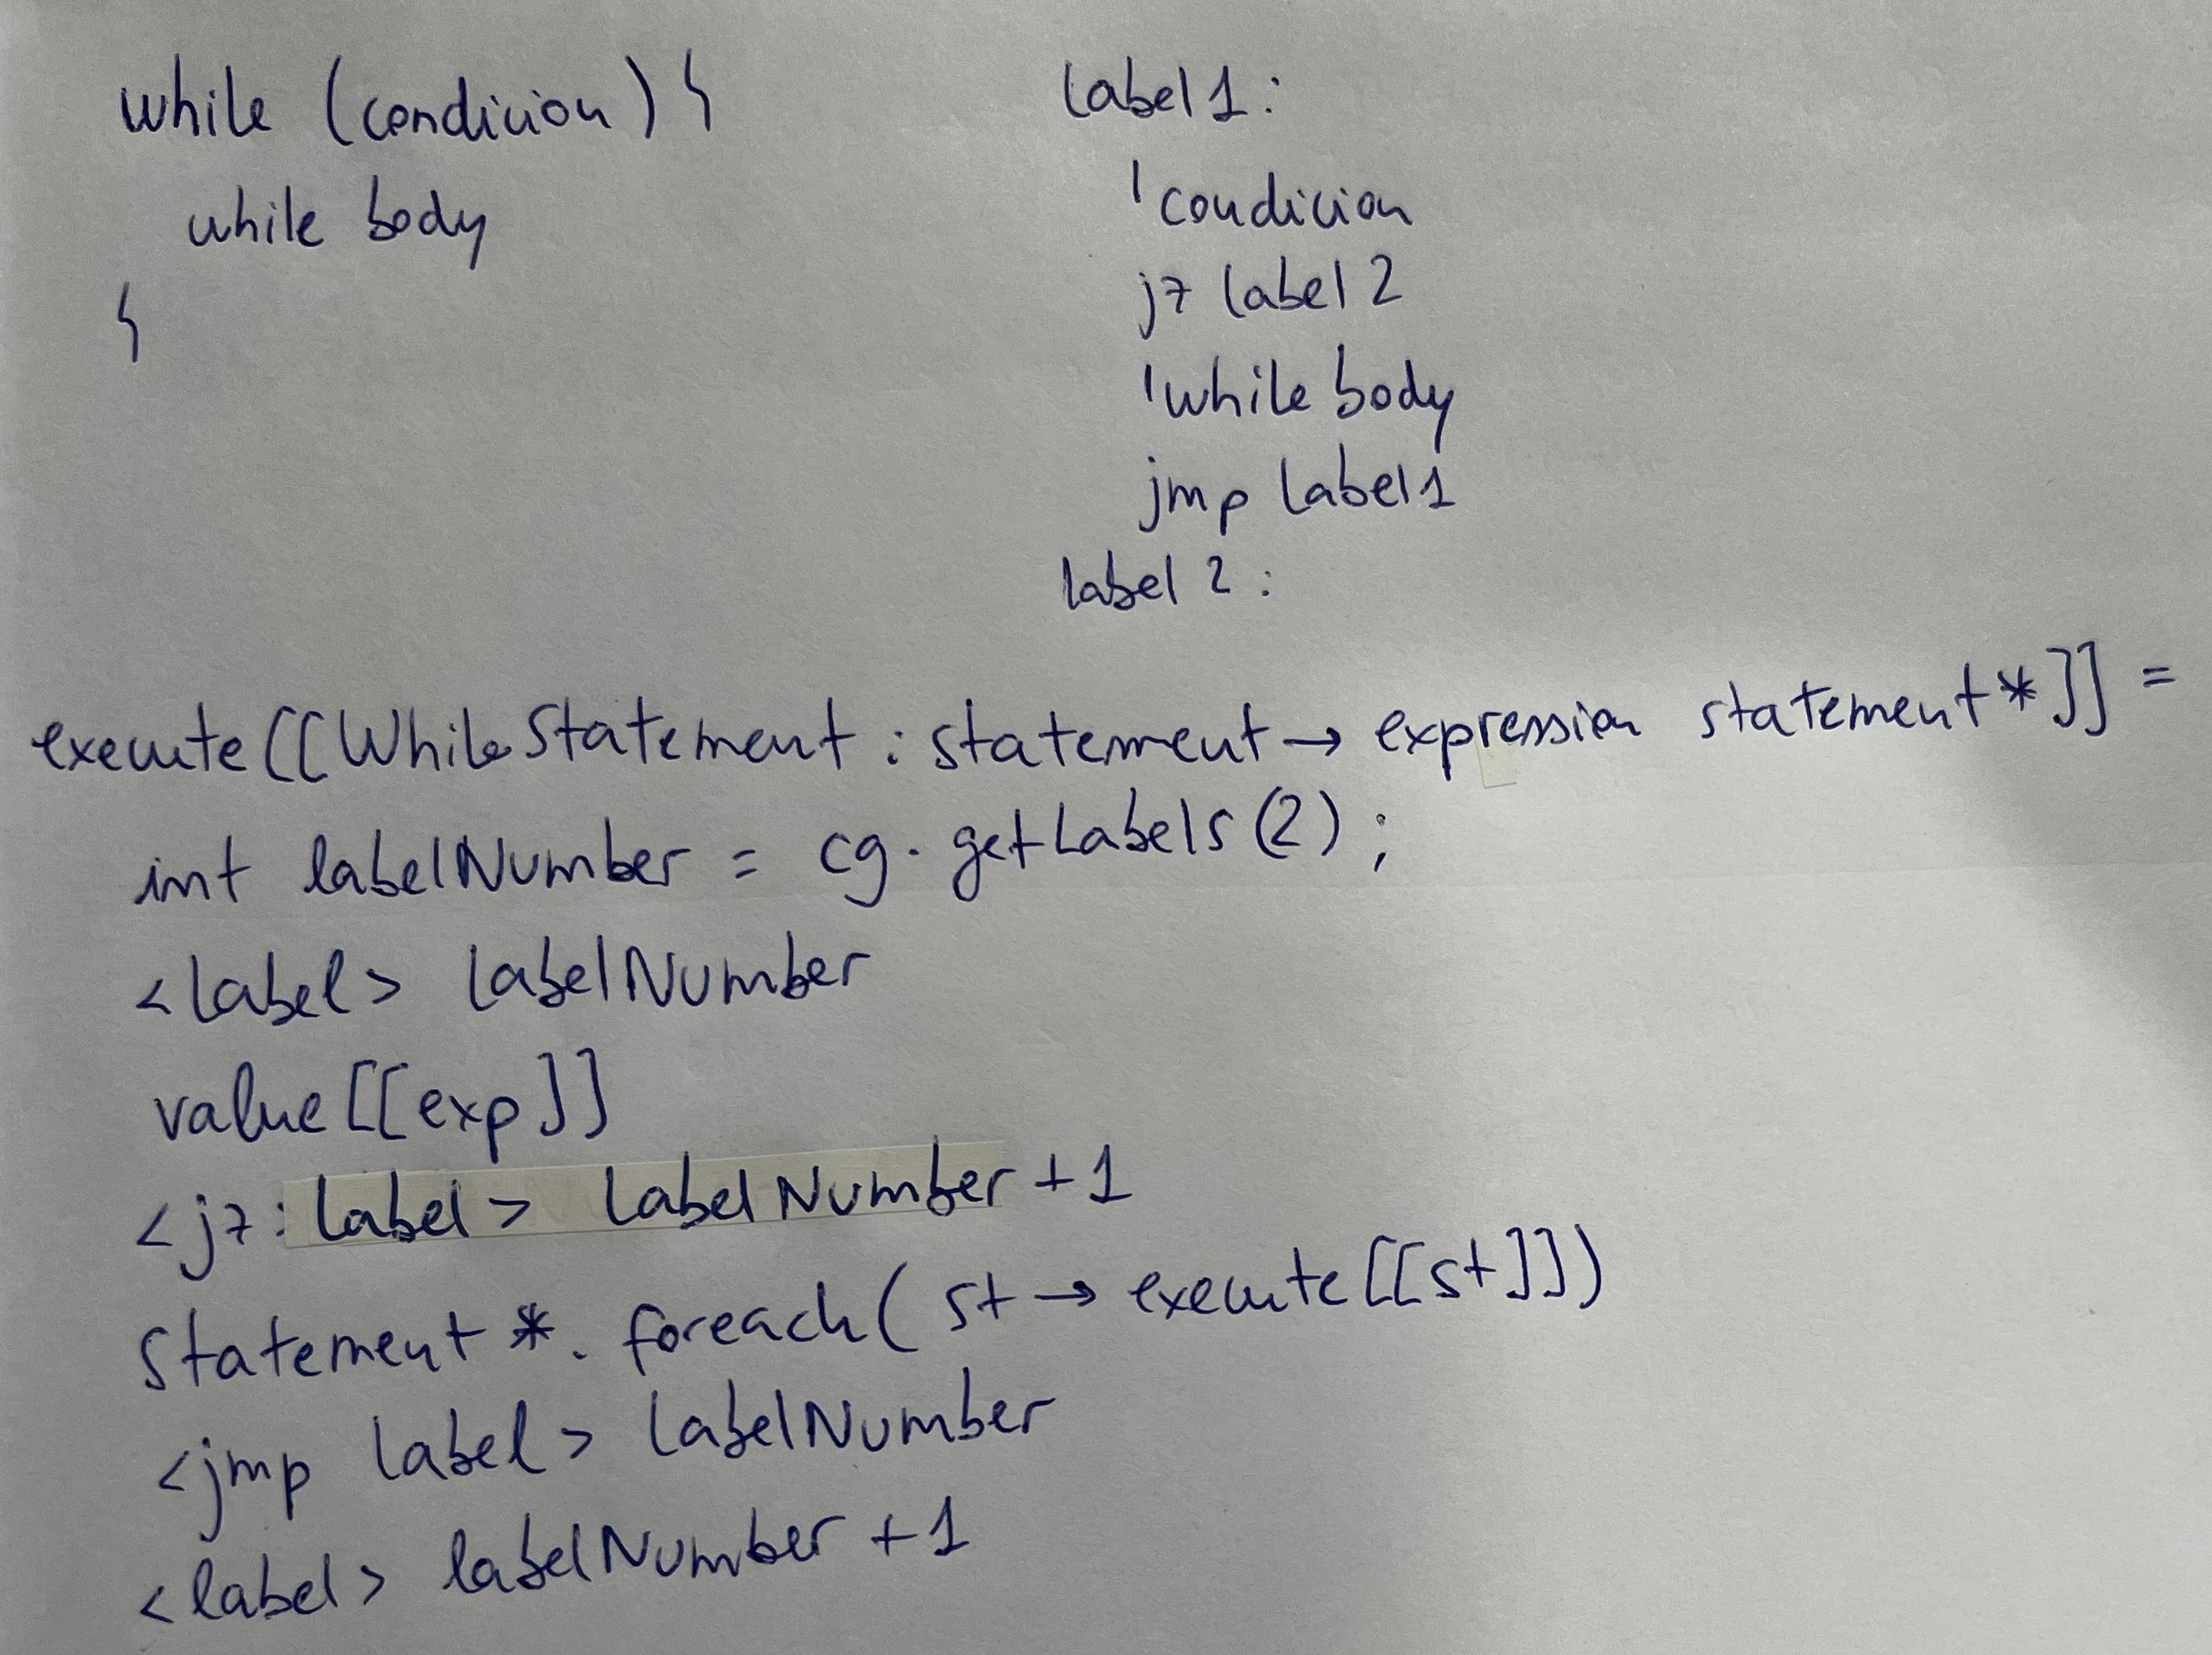 while (condicion) {
while body
}
label 1 :
' condicion
jz label 2
' while body
jmp label1
label 2 :
execute[[WhileStatement : statement → expression statement*]] =
int labelNumber = cg.getLabels(2);
<label> labelNumber
value[[exp]]
<jz: label> labelNumber + 1
statement*.foreach( st → execute[[st]])
<jmp label> labelNumber
<label> labelNumber + 1